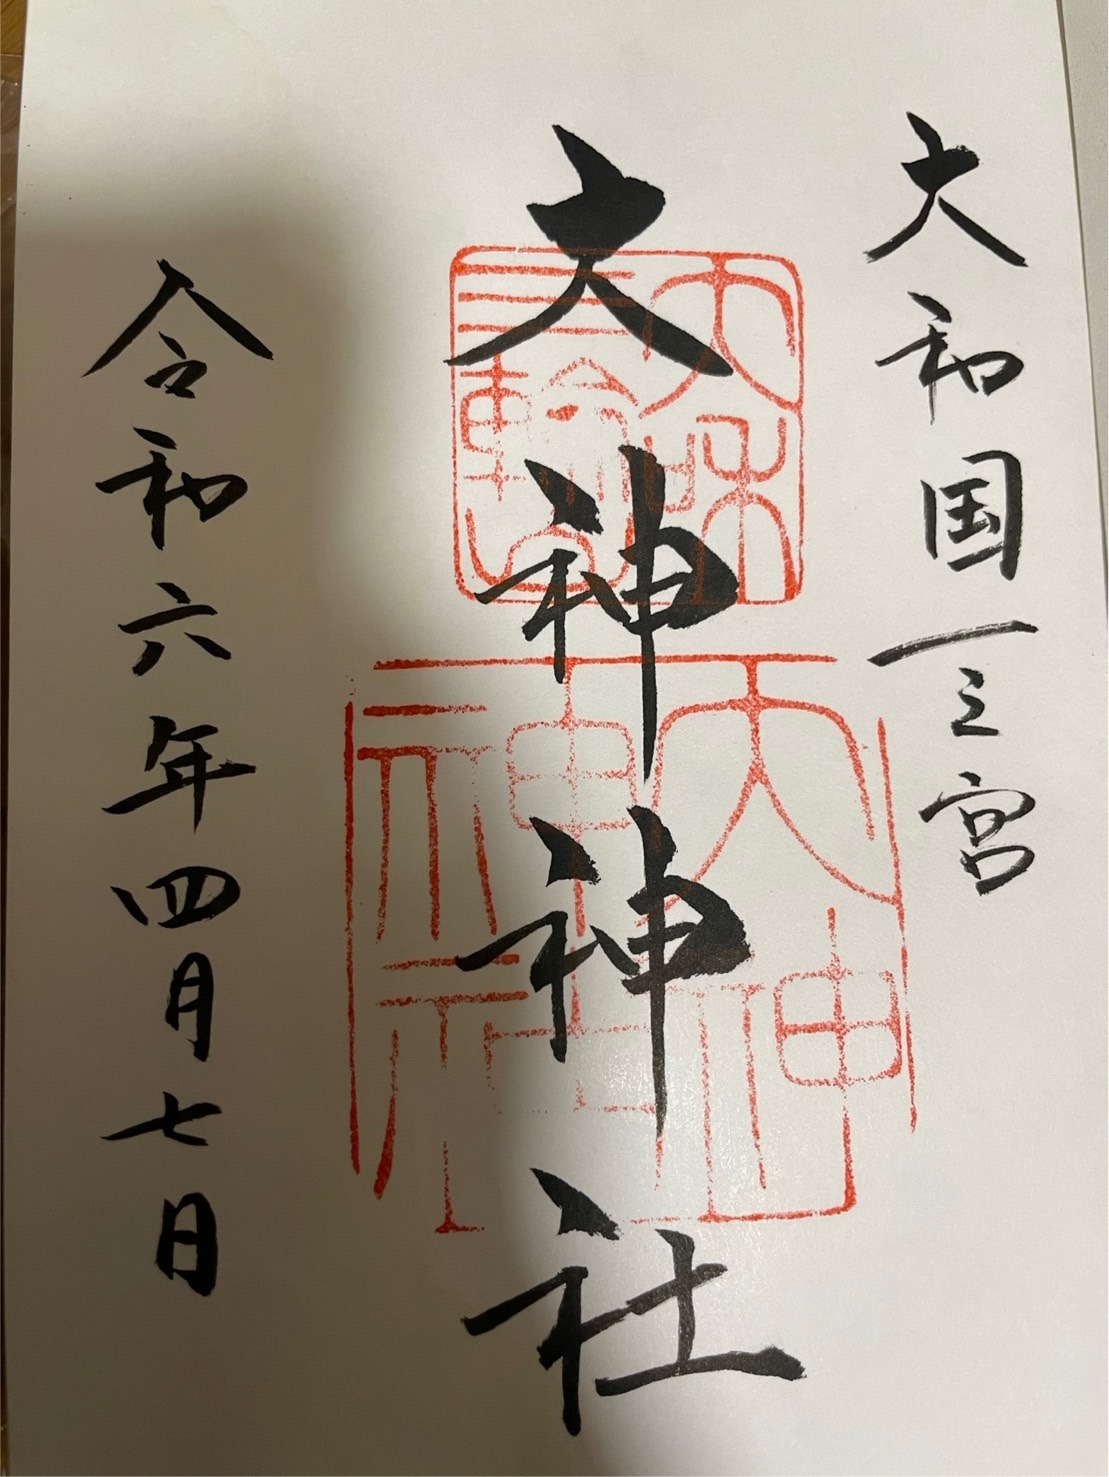 大和国一之宮
大神神社
大神
神社
令和六年四月七日